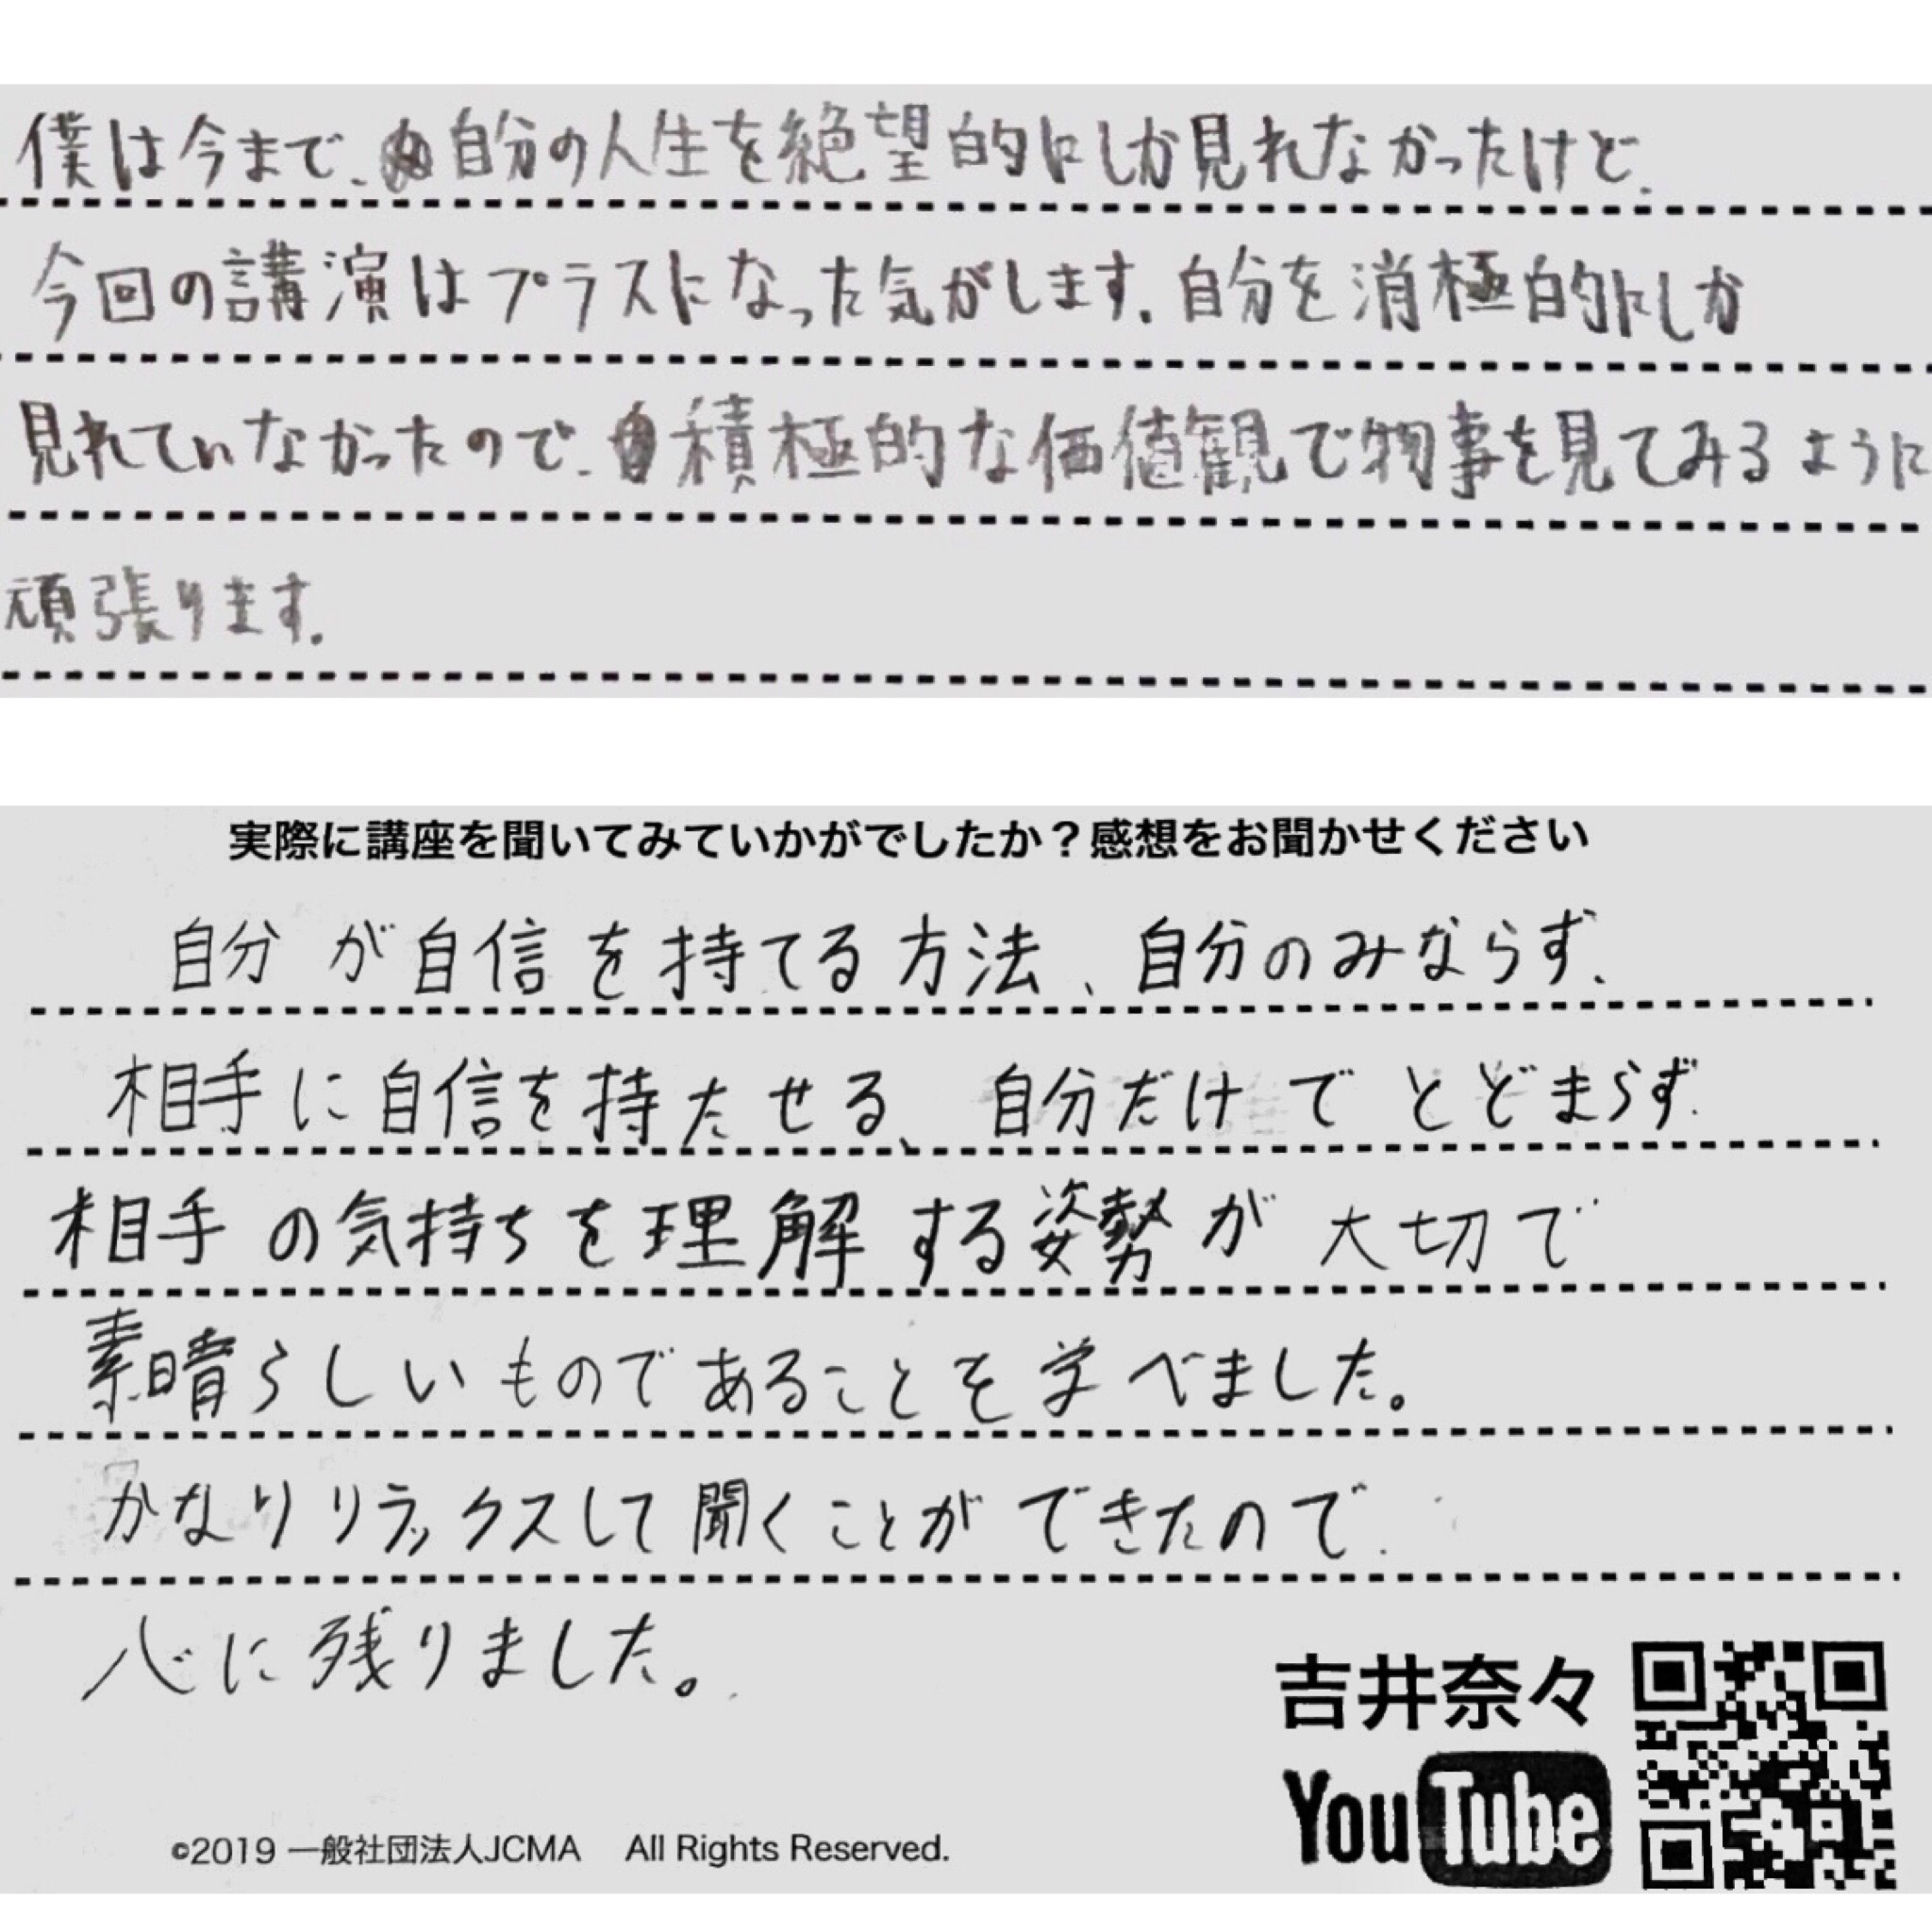 僕は今まで、自分の人生を絶望的にしか見れなかったけど、
今回の講演はプラスになった気がします。自分を消極的にしか
見れていなかったので、積極的な価値観で物事を見てみるように
頑張ります。
実際に講座を聞いてみていかがでしたか？感想をお聞かせください
自分が自信を持てる方法、自分のみならず、
相手に自信を持たせる、自分だけでとどまらず
相手の気持ちを理解する姿勢が大切で
素晴らしいものであることを学べました。
かなりリラックスして聞くことができたので、
心に残りました。
吉井奈々
YouTube
©2019 一般社団法人JCMA All Rights Reserved.